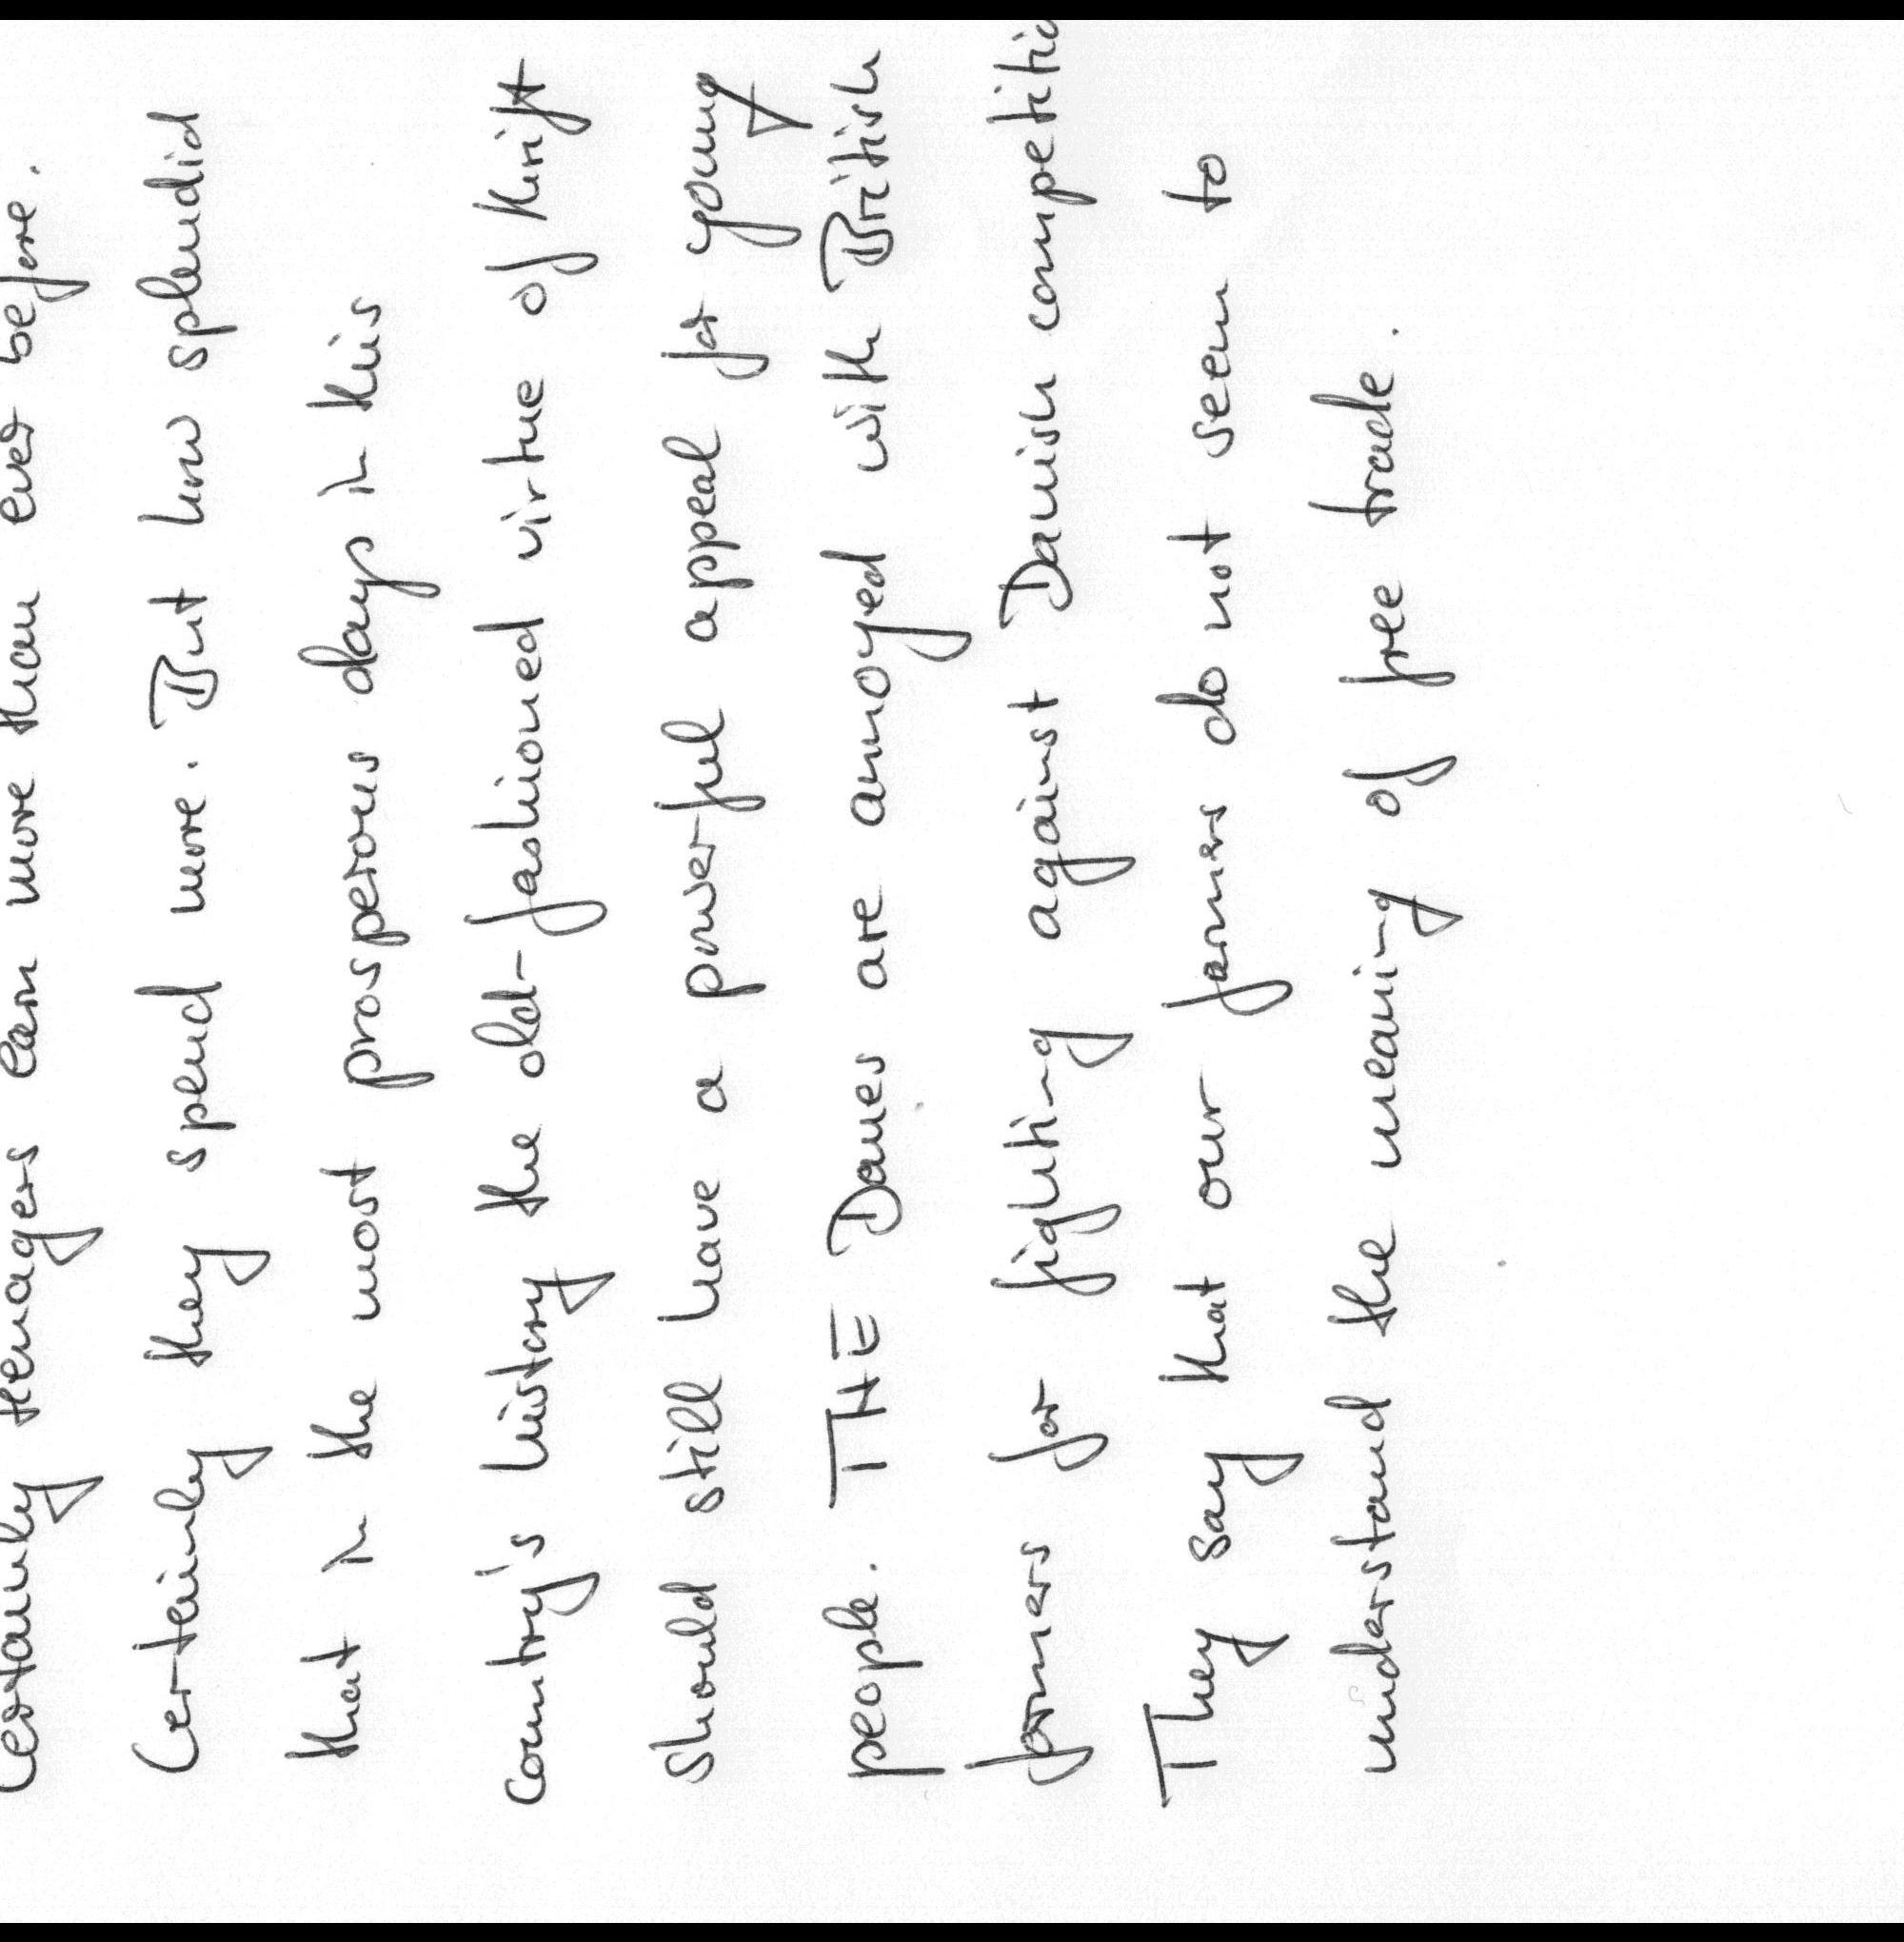 Certainly teenagers earn more than ever before.
Certeinly they spend more. But how splendid
that in the most prosperous days in this
country's history the old-fashioned virtue of thrift
should still have a powerful appeal for young
people. THE Danes are annoyed with British
farmers for fighting against Danish competitio
They say that our farmers do not seem to
understand the meaning of free trade.